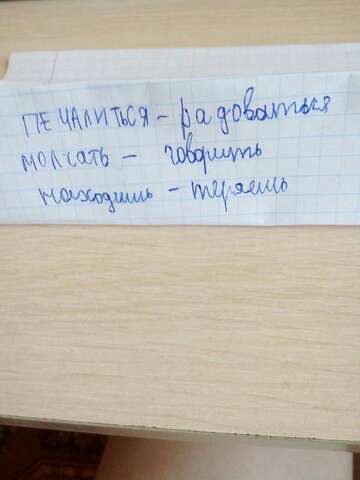 ПЕЧАЛИТЬСЯ - радоваться
молчать - говорить
находишь - теряешь